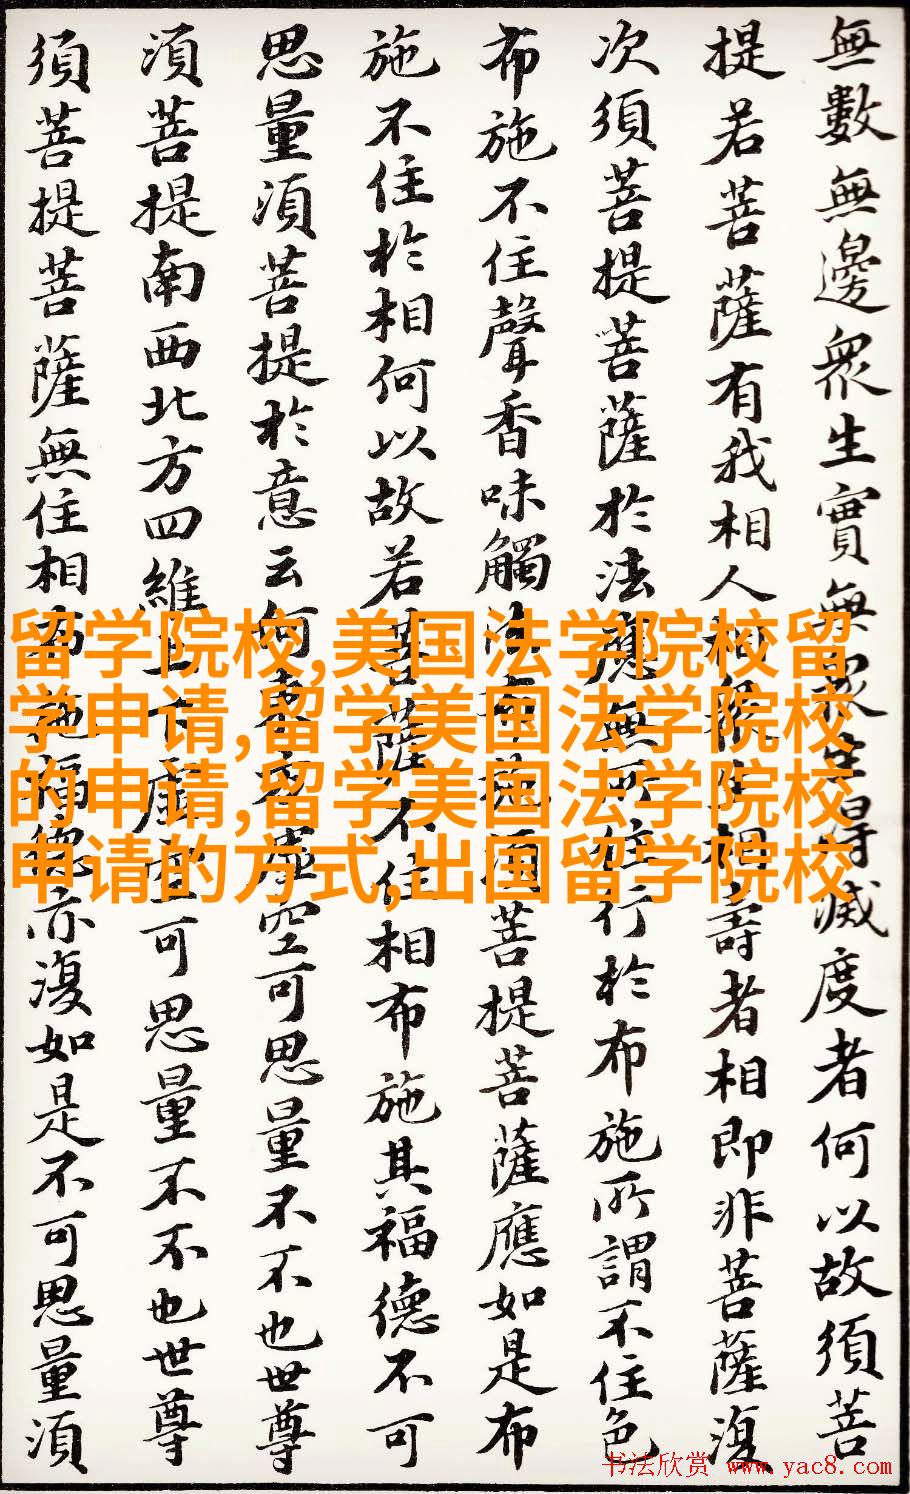 無數無邊衆生實無衆生得滅度者何以故須菩
提若菩薩有我相人相衆生相壽者相即非菩薩復
次須菩提菩薩於法應無所住行於布施所謂不住色
布施不住聲香味觸法布施須菩提菩薩應如是布
施不住於相何以故若菩薩不住相布施其福德不可
思量須菩提於意云何東方虛空可思量不不也世尊
須菩提南西北方四維上下虛空可思量不不也世尊
須菩提菩薩無住相布施福德亦復如是不可思量須
留学院校,美国法学院校留
学申请,留学美国法学院校
的申请,留学美国法学院校
申请的方式,出国留学院校
书法欣赏 www.yac8.com